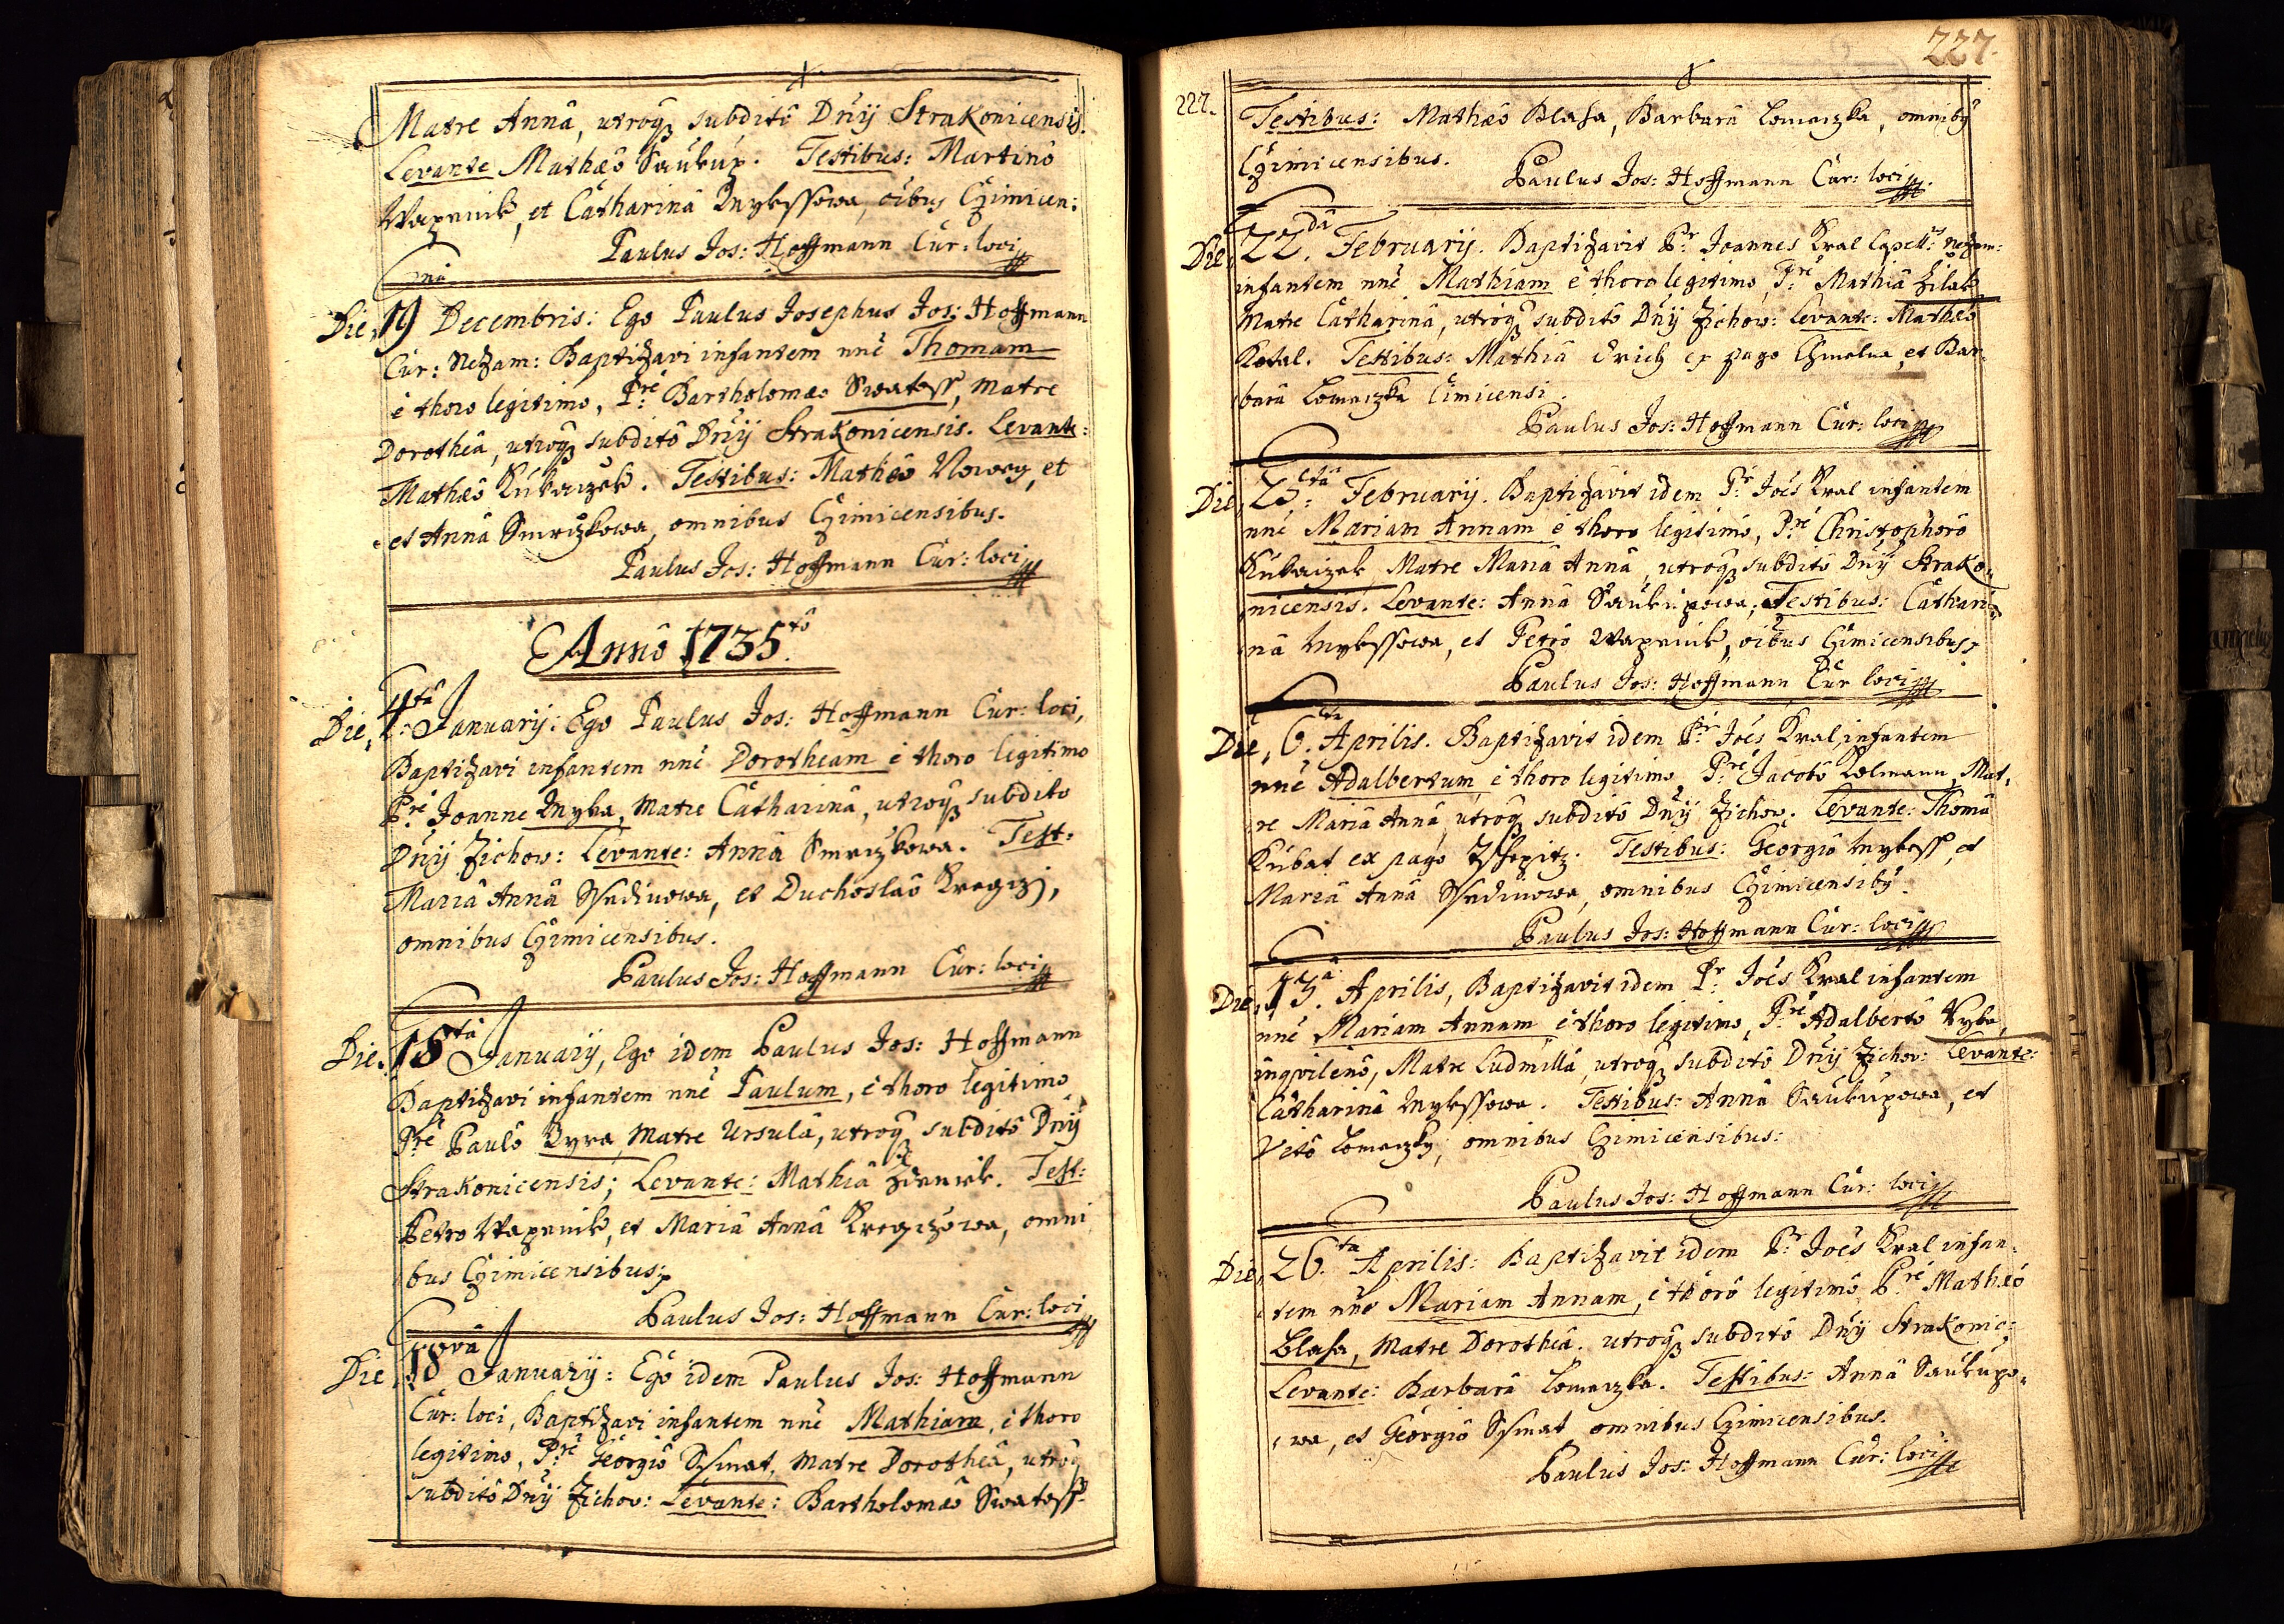 Matre Annâ, utroq3 subditô Dn̄ij Strakonicensis.
Levante Mathæô Saukup. Testibus: Martinô
Wapenik, et Catharinâ Mykssowa, oĩbus Cžimicen:
Paulus Jos: Hoffmann Cur: loci
Die, 19na Decembris: Ego Paulus Josephus Jos: Hoffmann
Cur: Nezam: Baptizavi infantem nn̄e Thomam
è thoro legitimo, P:re Bartholomæo Swatoss, Matre
Dorotheâ, utroq3 subditô Dn̄ij Strakonicensis. Levante:
Mathæô Kubaczek. Testibus: Mathæô Nowey, et
et Annâ Smržkowa, omnibus Cžimicensibus.
Paulus Jos: Hoffmann Cur: loci
Annô 1735tô.
Die, 4:ta Januarij: Ego Paulus Jos: Hoffmann Cur: loci,
Baptizavi infantem nn̄e Dorotheam è thoro legitimo
P:re Joanne Myka, Matre Catharinâ, utroq3 subdito
Dn̄ij Žichov: Levante: Annâ Smržkowa. Test:
Mariâ Annâ Ssediwowa, et Duchoslaô Kregczj,
omnibus Cžimicensibus.
Paulus Jos: Hoffmann Cur: loci
Die, 15ta January, Ego idem Paulus Jos: Hoffmann
Baptizavi infantem nn̄e Paulum, è thoro legitimo
P:re Paulô Byra, Matre Ursulâ, utroq3 subditô Dn̄ij
Strakonicensis; Levante: Mathiâ Zdenick. Test:
Petro Wapenik, et Mariâ Annâ Kregczowa, omni
bus Cžimicensibus;
Paulus Jos: Hoffmann Cur: loci
Die, 18avâ Januarij: Ego idem Paulus Jos: Hoffmann
Cur: loci, Baptizavi infantem nn̄e Mathiam, è thoro
legitimo, P:re Georgiô Ssmat, Matre Dorotheâ, utroq3
subditô Dn̄ij Žichov: Levante: Bartholomæô Swatoss
227.
227.
Testibus: Mathæô Blasa, Barbarâ Lomaczka, omnibg
Cžimicensibus.
Paulus Jos: Hoffmann Cur: loci
Die, 22dâ. Februarij. Baptizavit P:r Joannes Kral Capell:s Nezam:
infantem nn̄e Mathiam è thoro legitimo, P:re Mathiâ Žilak
Matre Catharinâ, utroq3 subditô Dn̄ij Žichov: Levante: Mathæô
Kotal. Testibus: Mathiâ Erich ex pago Chmelna, et Bar-
barâ Lomaczka Cimicensi.
Paulus Jos: Hoffmann Cur: loci
Die, 25:ta Februarij. Baptizavit idem P:r Joēs Kral infantem
nn̄e Mariam Annam è thoro legitimô, P:re Christophorô
Kubaczek, Matre Mariâ Annâ, utroq3 subditô Dn̄ij Strako-
nicensis. Levante: Annâ Saukupowa; Testibus: Cathari-
nâ Mykssowa, et Petrô Wapenik, oĩbus Cžimicensibus,
Paulus Jos: Hoffmann Cur loci
Die, 6.ta Aprilis. Baptizavit idem P:r Joēs Kral, infantem
nn̄e Adalbertum è thoro legitimo, P:re Jacobô Kolmann, Mat-
re Mariâ Annâ, utroq3 subditô Dn̄ij Žichov: Levante: Thomâ
Kubat ex pago Zssepitz. Testibus: Georgiô Mykess, et
Mariâ Annâ Ssediwowa, omnibus Cžimicensibg.
Paulus Jos: Hoffmann Cur: loci
Die, 13.a Aprilis, Baptizavit idem P:r Joēs Kral infantem
nn̄e Mariam Annam è thoro legitimo, P:re Adalbertô Ryba,
inqvilenô, Matre Ludmillâ, utroq3 subditô Dn̄ij Žichov: Levante:
Catharinâ Mykssowa. Testibus: Annâ Saukupowa, et
Vitô Lomaczky, omnibus Cžimicensibus:
Paulus Jos: Hoffmann Cur: loci
Die, 26.ta Aprilis: Baptizavit idem P:r Joēs Kral infan-
tem nn̄e Mariam Annam, è thorô legitimô P:re Mathæô
Blasa, Matre Dorotheâ. utroq3 subditô Dn̄ij Strakonic:
Levante: Barbarâ Lomaczka. Testibus: Annâ Saukupo-
wa, et Georgiô Ssmat omnibus Cžimicensibus.
Paulus Jos: Hoffmann Cur: loci